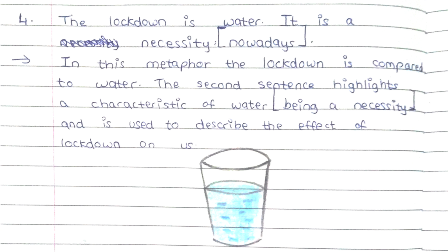 4. The lockdown is water. It is a
necessity. [nowadays].
→ In this metaphor the lockdown is compared
to water. The second sentence highlights
a characteristic of water [being a necessity]
and is used to describe the effect of
lockdown on us